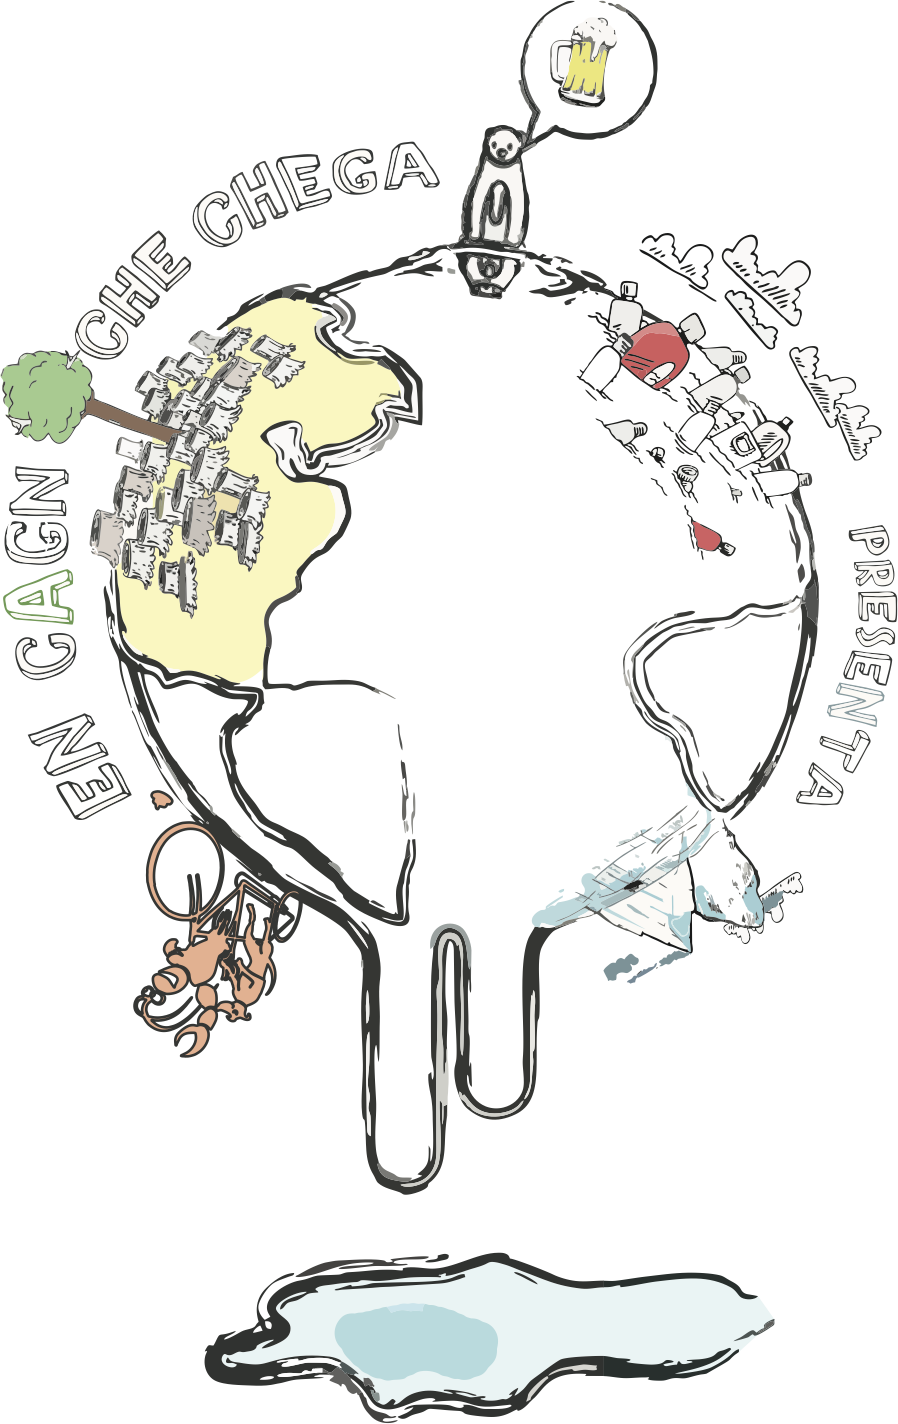 EN CAGN CHE CHEGA
PRESENTA